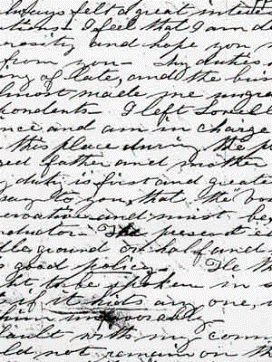 always felt a great inte
tion - I feel that I am d
erosity and hope you
from you -
ing of late, and the bus
almost made me
pondents. I left
nce and am in charge
this place during the p
ged father and mother
duty is first and great
say to you, that the
servative and must be
ductor - The present i
the ground on half and
s good policy. The th
ht to be spoken in
if it hits any one,
him immorally
fault with my com
ld not remain on th